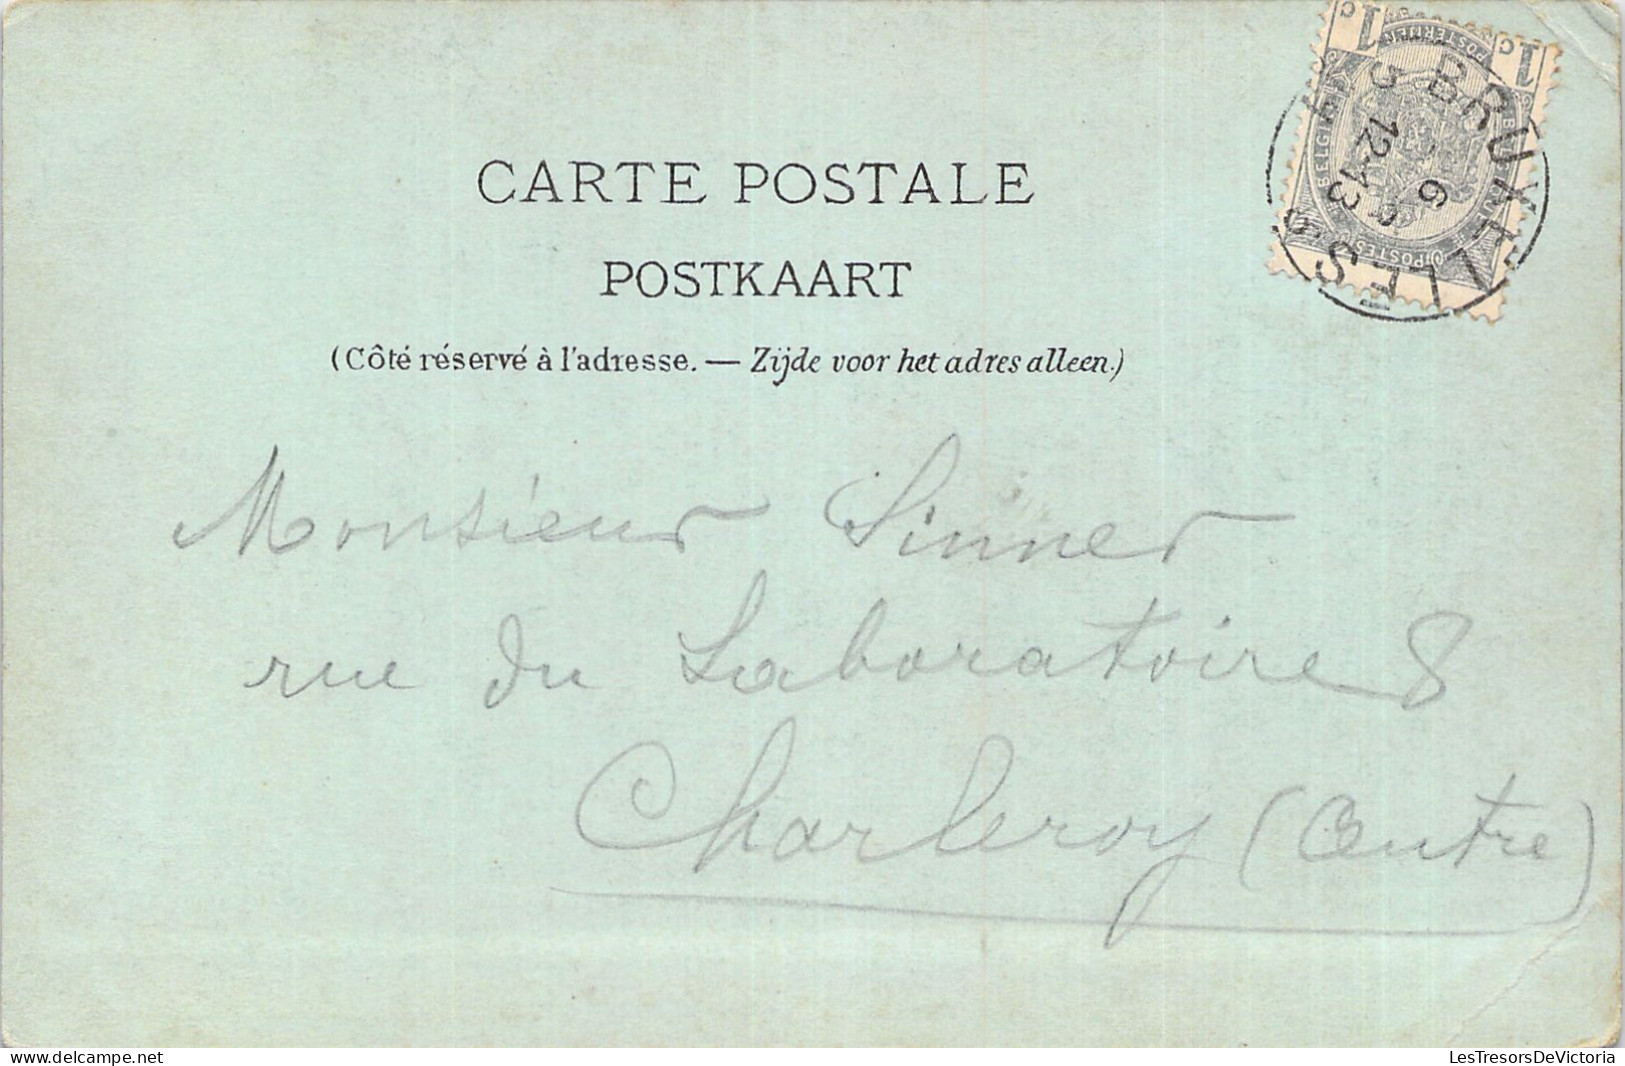 CARTE POSTALE
POSTKAART
(Côté réservé à l'adresse. — Zijde voor het adres alleen.)
1c 1c
POSTERIJEN
BELGIË BELGIQUE
POSTES
BRUXELLES
12-13
6
Monsieur Sinner
rue du Laboratoire 8
Charleroy (Centre)
LesTresorsDeVictoria
delcampe.net
LesTresorsDeVictoria